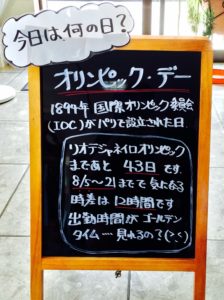 今日は何の日？
オリンピック・デー
1894年 国際オリンピック委員会
(IOC)がパリで設立された日
リオデジャネイロオリンピック
まであと 43日 です
8/5〜21までで 気になる
時差は 12時間です
出勤時間が ゴールデン
タイム…. 見れるの？(>_<)